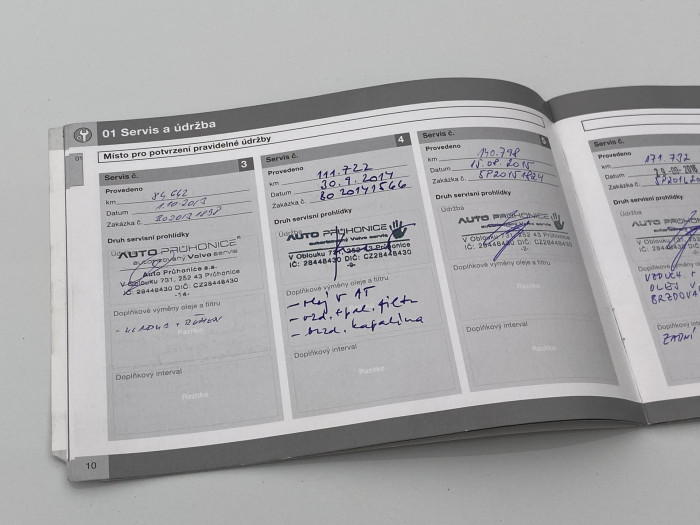 01 Servis a údržba
Místo pro potvrzení pravidelné údržby
01
Servis č. 3
Provedeno
km 84 662
Datum 1.10.2013
Zakázka č.
Druh servisní prohlídky
Údržba
AUTO PRŮHONICE
autorizovaný Volvo servis
Auto Průhonice a.s.
V Oblouku 731, 252 43 Průhonice
IČ: 28448430 DIČ: CZ28448430
-14-
Doplňkové výměny oleje a filtru
Razítko
Doplňkový interval
Razítko
10
Servis č. 4
Provedeno
km 111.722
Datum 30.9.2014
Zakázka č. 80 20141566
Druh servisní prohlídky
Údržba
AUTO PRŮHONICE
autorizovaný Volvo servis
V Oblouku 731, 252 43 Průhonice
IČ: 28448430 DIČ: CZ28448430
-9-
Doplňkové výměny oleje a filtru
- olej v AT
- vzd. + pal. filtr
- brzd. kapalina
Doplňkový interval
Razítko
Servis č. 5
Provedeno
km 140.798
Datum 15.08.2015
Zakázka č. SP20151824
Druh servisní prohlídky
Údržba
AUTO PRŮHONICE
autorizovaný Volvo servis
V Oblouku 731, 252 43 Průhonice
IČ: 28448430 DIČ: CZ28448430
-2-
Doplňkové výměny oleje a filtru
Razítko
Doplňkový interval
Razítko
Servis č.
Provedeno
km 171.732
Datum
Zakázka č.
Druh servisní
Údržba
V Oblouku
IČ: 2844
Doplňkové vým
OLEJ V
Doplňkový inter
ZADNÍ